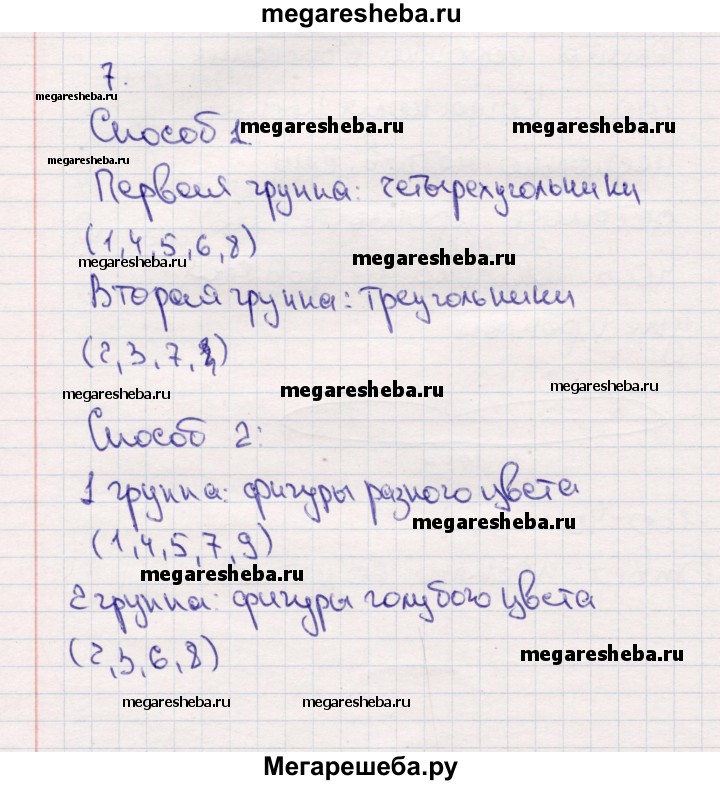 megaresheba.ru
7.
megaresheba.ru
Способ 1 megaresheba.ru megaresheba.ru
megaresheba.ru
Первая группа: четырехугольники
(1,4,5,6,8)
megaresheba.ru megaresheba.ru
Вторая группа: треугольники
(2,3,7,9)
megaresheba.ru megaresheba.ru megaresheba.ru
Способ 2:
1 группа: фигуры разного цвета
megaresheba.ru
(1,4,5,7,9)
megaresheba.ru
2 группа: фигуры голубого цвета
(2,3,6,8)
megaresheba.ru
megaresheba.ru megaresheba.ru
Мегарешеба.ру